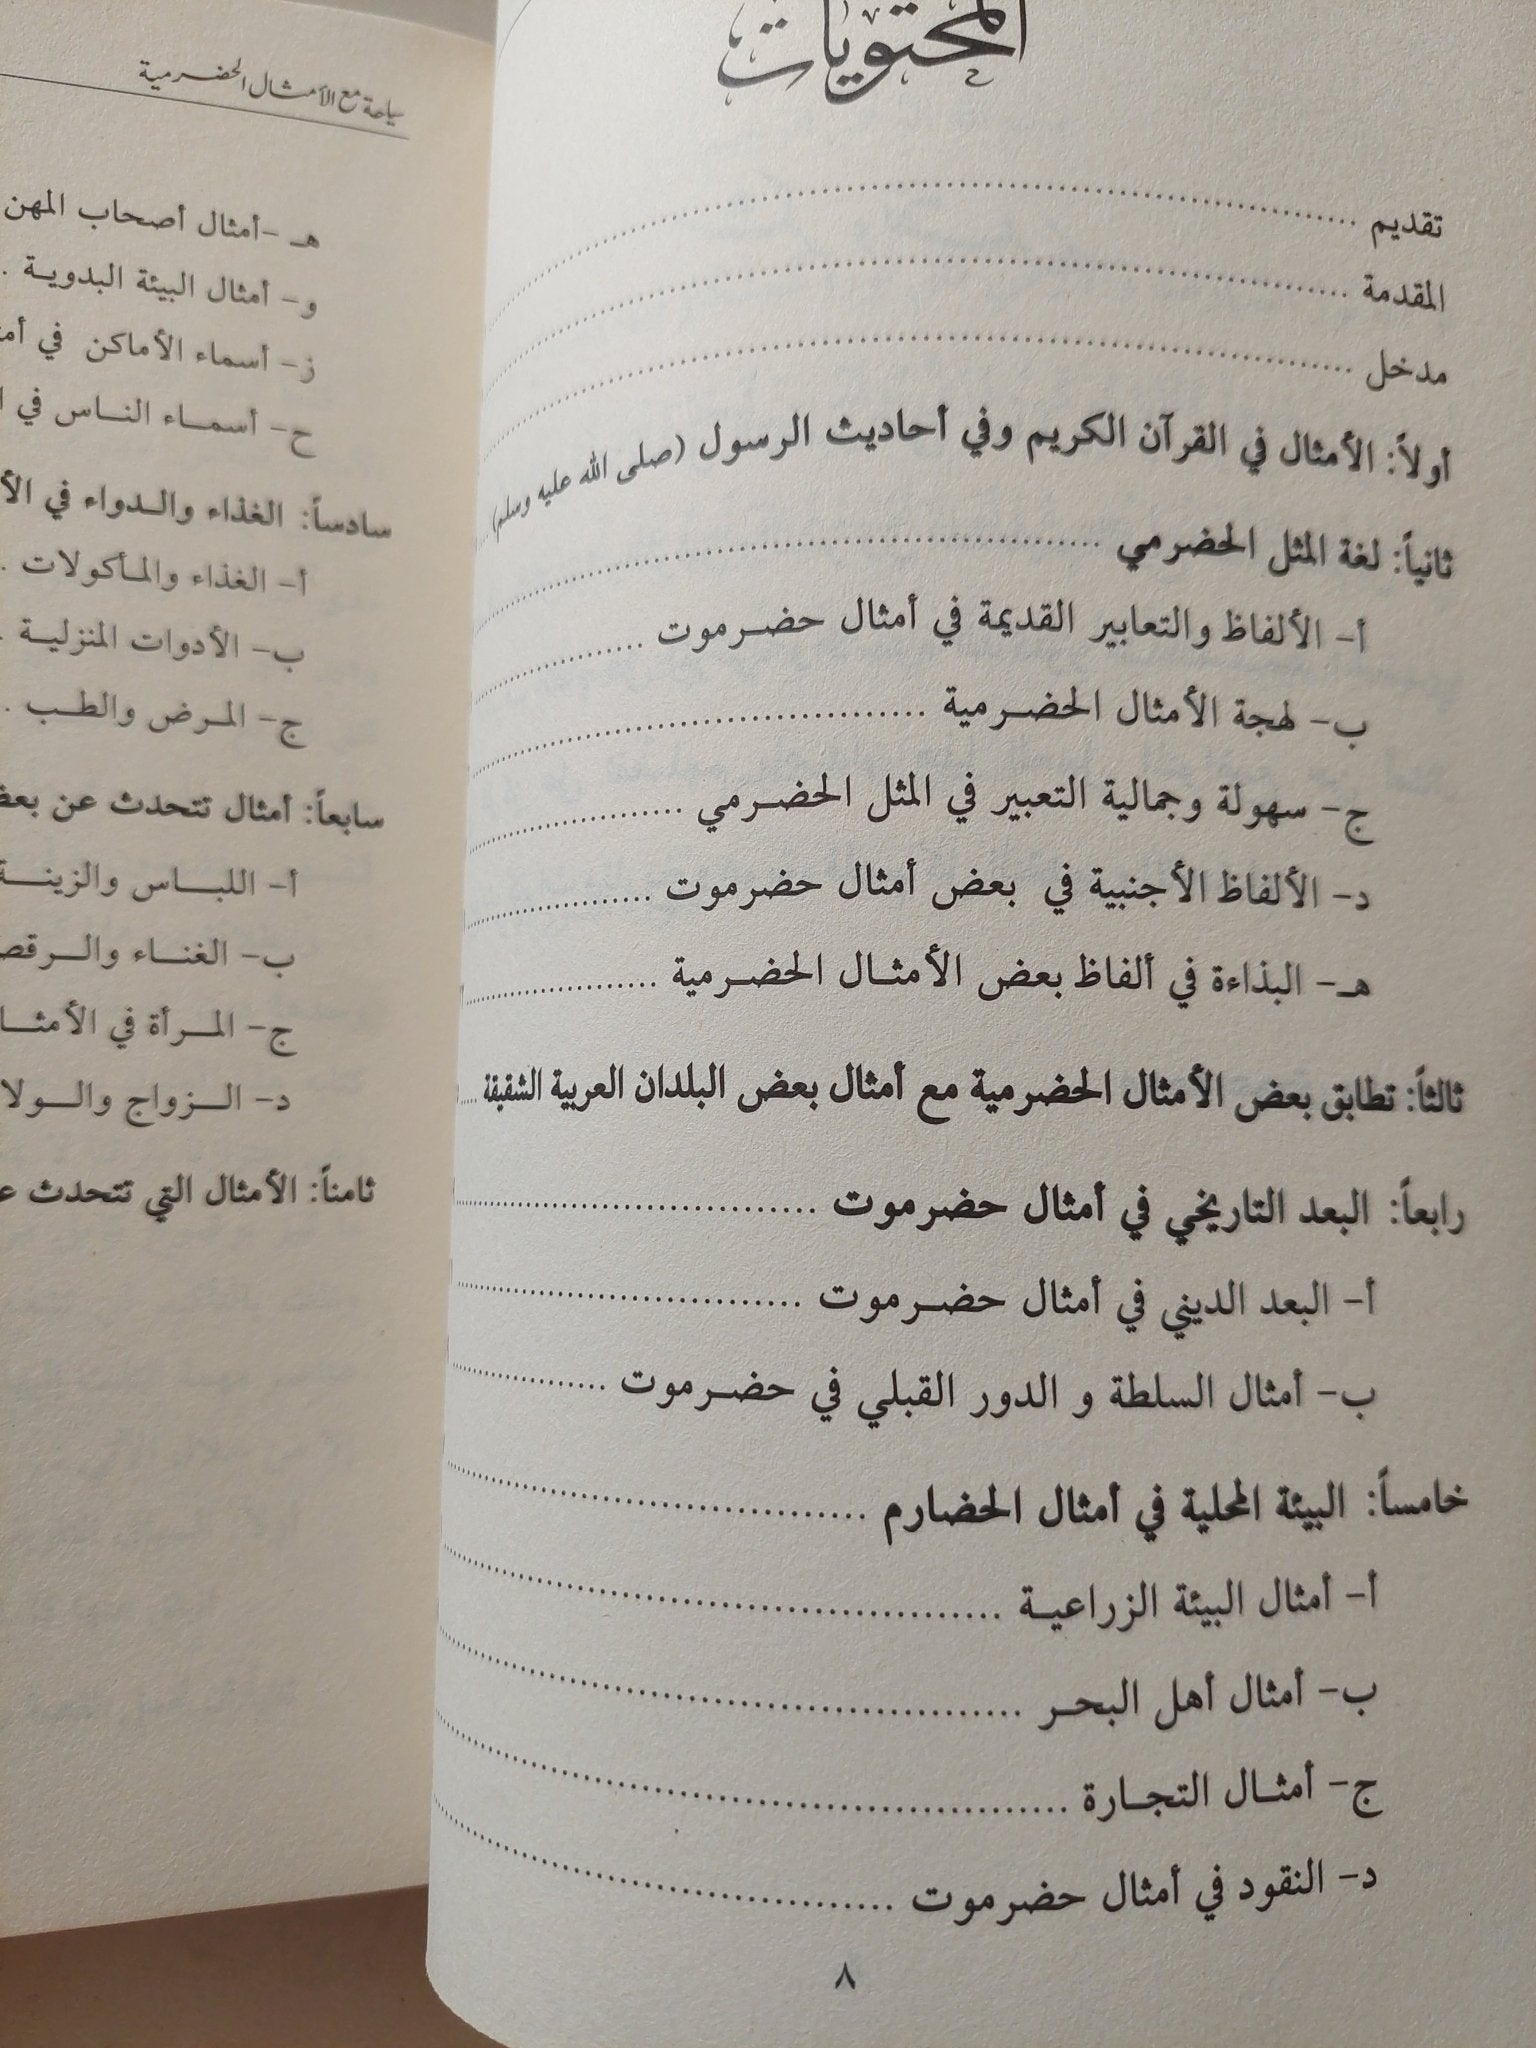 المحتويات
تقديم ........................................
المقدمة ........................................
مدخل ........................................
أولاً: الأمثال في القرآن الكريم وفي أحاديث الرسول (صلى الله عليه وسلم)
ثانياً: لغة المثل الحضرمي ........................................
أ- الألفاظ والتعابير القديمة في أمثال حضرموت ....................
ب- لهجة الأمثال الحضرمية ........................................
ج- سهولة وجمالية التعبير في المثل الحضرمي ....................
د- الألفاظ الأجنبية في بعض أمثال حضرموت ....................
هـ- البذاءة في ألفاظ بعض الأمثال الحضرمية ....................
ثالثاً: تطابق بعض الأمثال الحضرمية مع أمثال بعض البلدان العربية الشقيقة .....
رابعاً: البعد التاريخي في أمثال حضرموت ..............................
أ- البعد الديني في أمثال حضرموت ..............................
ب- أمثال السلطة و الدور القبلي في حضرموت ....................
خامساً: البيئة المحلية في أمثال الحضارم ..............................
أ- أمثال البيئة الزراعية ........................................
ب- أمثال أهل البحر ........................................
ج- أمثال التجارة ........................................
د- النقود في أمثال حضرموت ..............................
٨
سياحة مع الأمثال الحضرمية
هـ -أمثال أصحاب المهن
و- أمثال البيئة البدوية .
ز- أسماء الأماكن في
ح- أسماء الناس في
سادساً: الغذاء والدواء في
أ- الغذاء والمأكولات .
ب- الأدوات المنزلية .
ج- المرض والطب .
سابعاً: أمثال تتحدث عن
أ- اللباس والزينة
ب- الغناء والرقص
ج- المرأة في
د- الزواج
ثامناً: الأمثال التي تتحدث